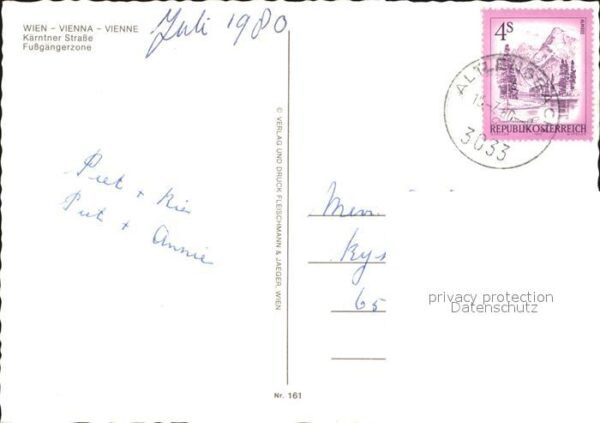 WIEN - VIENNA - VIENNE
Kärntner Straße
Fußgängerzone
Juli 1980
4S
REPUBLIK ÖSTERREICH
3033
Piet + Ria
Piet + Annie
© VERLAG UND DRUCK FLEISCHMANN & JAEGER, WIEN
65
privacy protection
Datenschutz
Nr. 161